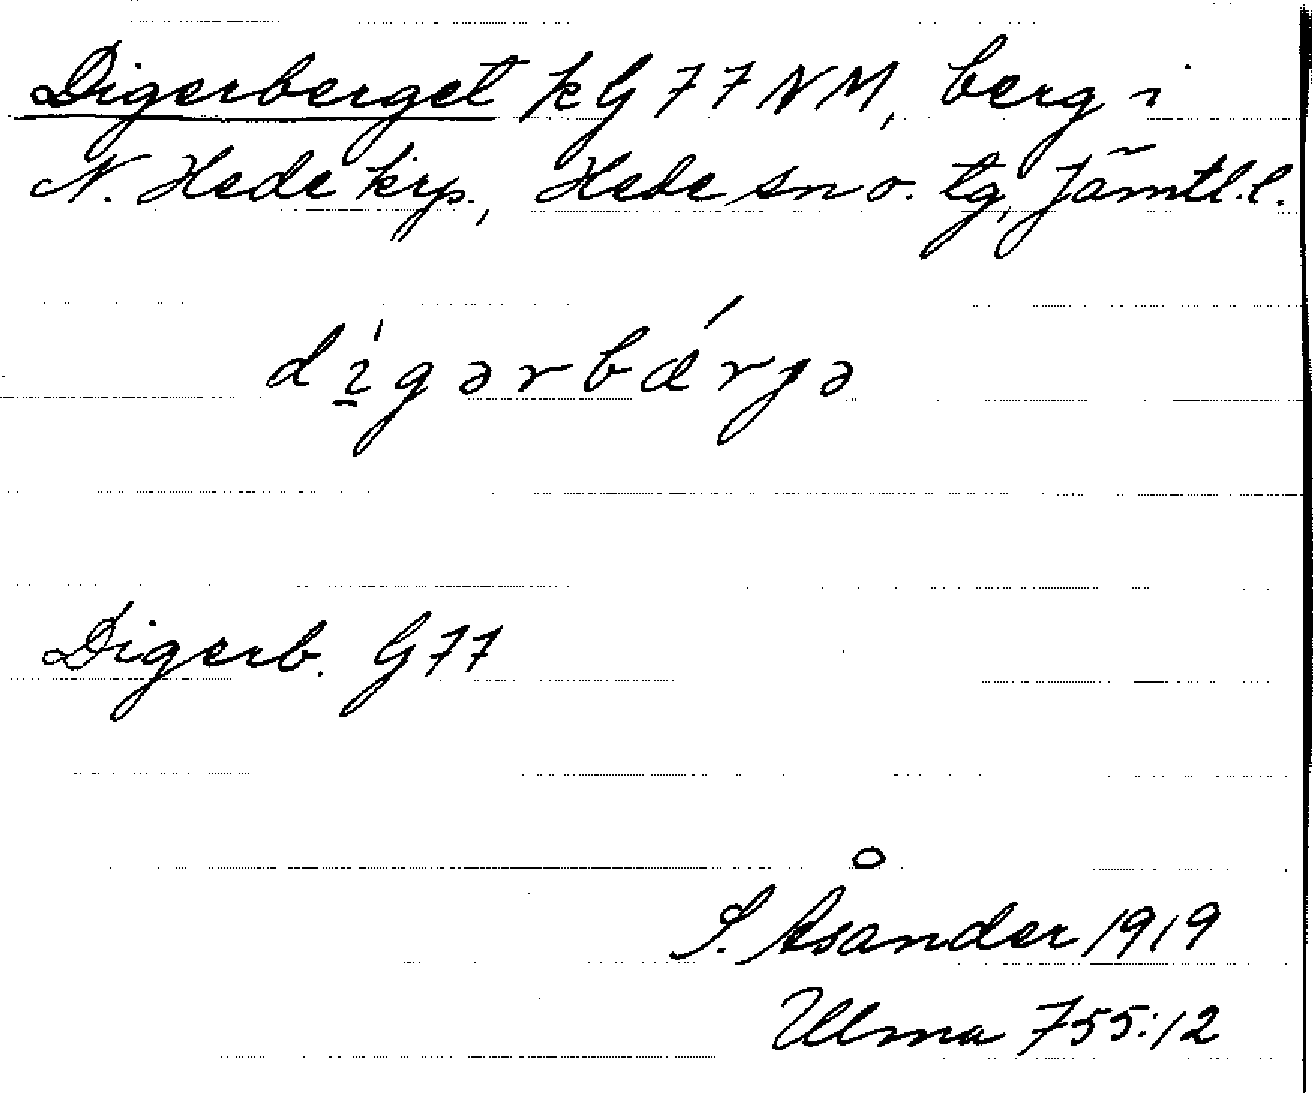 Digerberget kG 77 NM, berg i
N. Hede krp., Hede sn o. tg, Jämtl. l.
dígərbǽrgə
Digerb. G77
S. Åsander 1919
Ulma 755:12